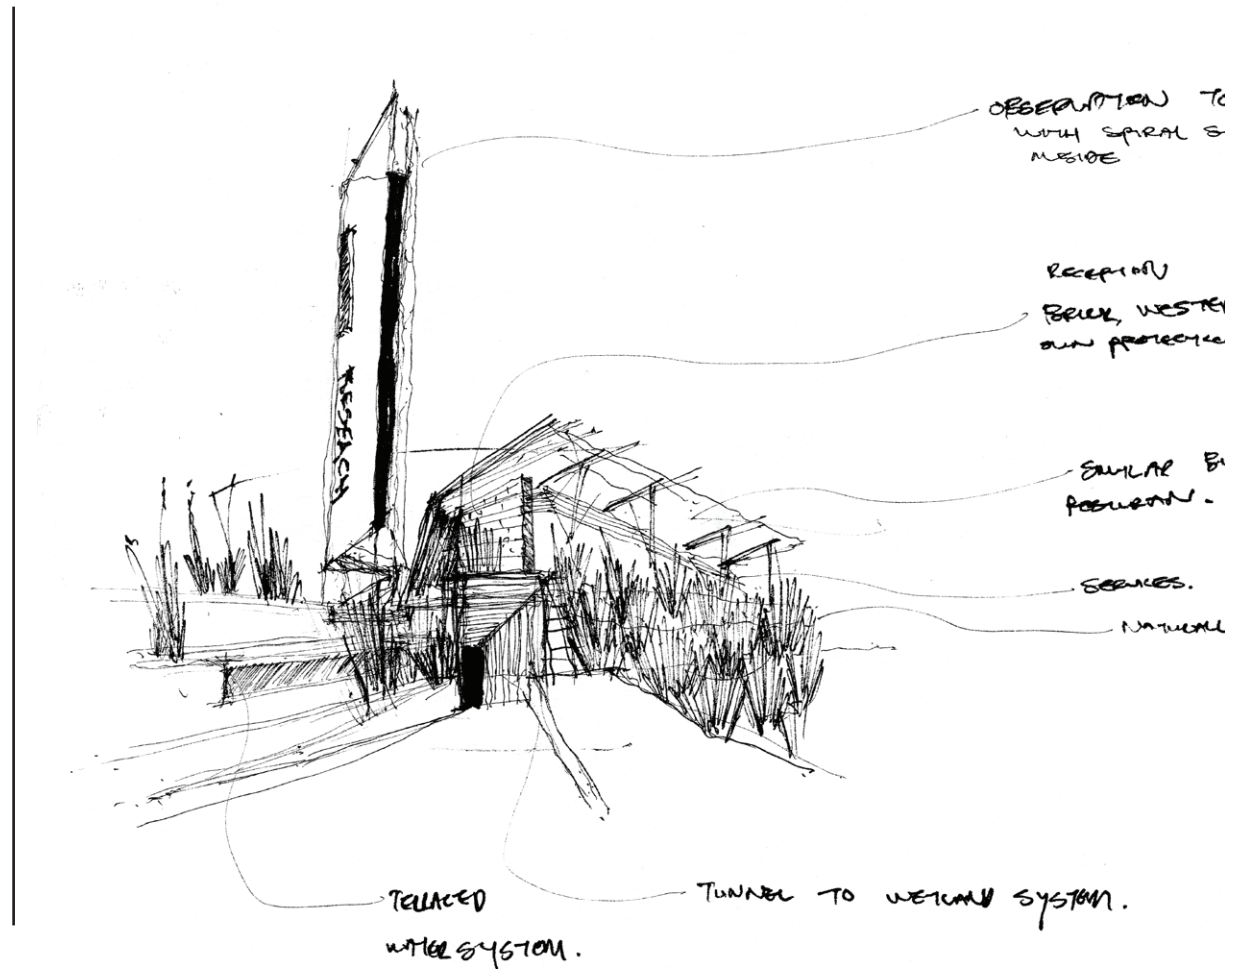 OBSERVATION TO
WITH SPIRAL S
INSIDE
RECEPTION
BRICK, WESTE
OWN
SIMILAR
SERVICES.
NATURAL
RESEACH
TERRACED
WATER SYSTEM.
TUNNEL TO WETLAND SYSTEM.